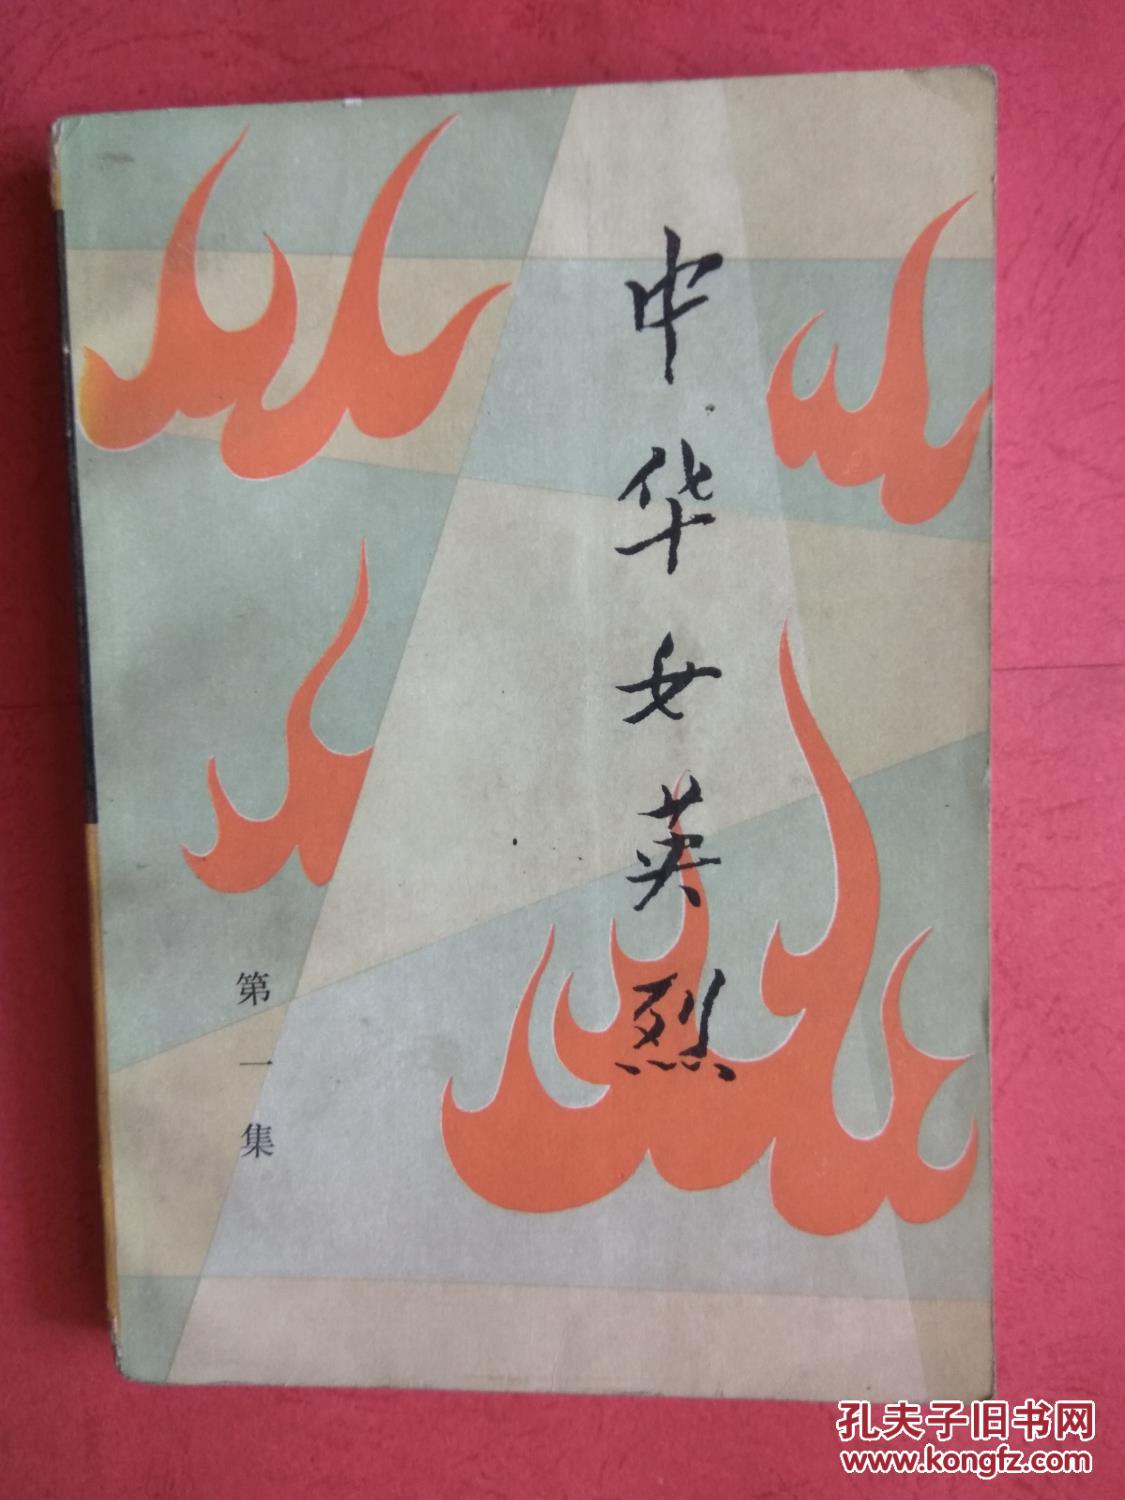 中华女英烈
第一集
孔夫子旧书网
www.kongfz.com